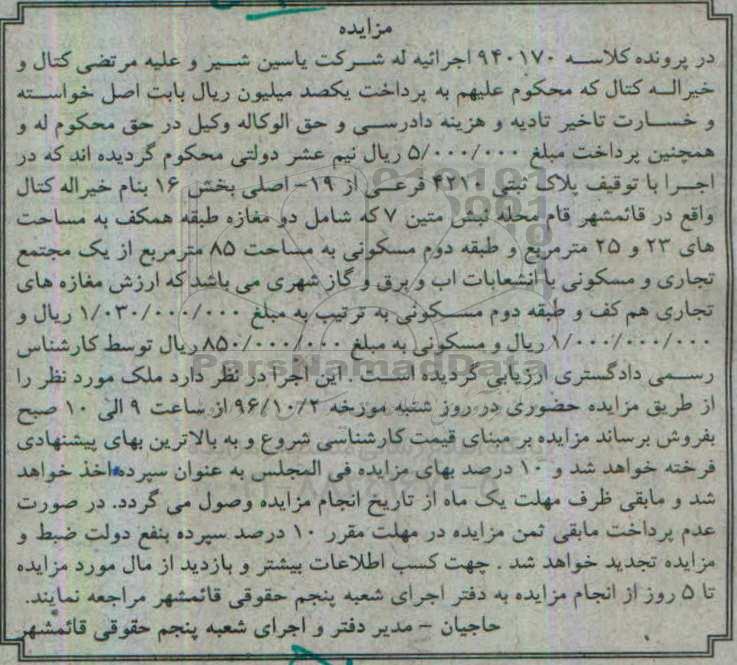 مزایده
در پرونده کلاسه ۹۴۰۱۷۰ اجرائیه له شرکت یاسین شیر و علیه مرتضی کتال و
خیراله کتال که محکوم علیهم به پرداخت یکصد میلیون ریال بابت اصل خواسته
و خسارت تاخیر تادیه و هزینه دادرسی و حق الوکاله وکیل در حق محکوم له و
همچنین پرداخت مبلغ ۵/۰۰۰/۰۰۰ ریال نیم عشر دولتی محکوم گردیده اند که در
اجرا با توقیف پلاک ثبتی ۴۲۱۰ فرعی از ۱۹- اصلی بخش ۱۶ بنام خیراله کتال
واقع در قائمشهر قام محله نبش متین ۷ که شامل دو مغازه طبقه همکف به مساحت
های ۲۳ و ۲۵ مترمربع و طبقه دوم مسکونی به مساحت ۸۵ مترمربع از یک مجتمع
تجاری و مسکونی با انشعابات اب و برق و گاز شهری می باشد که ارزش مغازه های
تجاری هم کف و طبقه دوم مسکونی به ترتیب به مبلغ ۱/۰۳۰/۰۰۰/۰۰۰ ریال و
۱/۰۰۰/۰۰۰/۰۰۰ ریال و مسکونی به مبلغ ۸۵۰/۰۰۰/۰۰۰ ریال توسط کارشناس
ParsNamadData
رسمی دادگستری ارزیابی گردیده است . این اجرا در نظر دارد ملک مورد نظر را
از طریق مزایده حضوری در روز شنبه مورخه ۹۶/۱۰/۲ از ساعت ۹ الی ۱۰ صبح
بفروش برساند مزایده بر مبنای قیمت کارشناسی شروع و به بالاترین بهای پیشنهادی
فرخته خواهد شد و ۱۰ درصد بهای مزایده فی المجلس به عنوان سپرده اخذ خواهد
شد و مابقی ظرف مهلت یک ماه از تاریخ انجام مزایده وصول می گردد. در صورت
عدم پرداخت مابقی ثمن مزایده در مهلت مقرر ۱۰ درصد سپرده بنفع دولت ضبط و
مزایده تجدید خواهد شد . جهت کسب اطلاعات بیشتر و بازدید از مال مورد مزایده
تا ۵ روز از انجام مزایده به دفتر اجرای شعبه پنجم حقوقی قائمشهر مراجعه نمایند.
حاجیان - مدیر دفتر و اجرای شعبه پنجم حقوقی قائمشهر